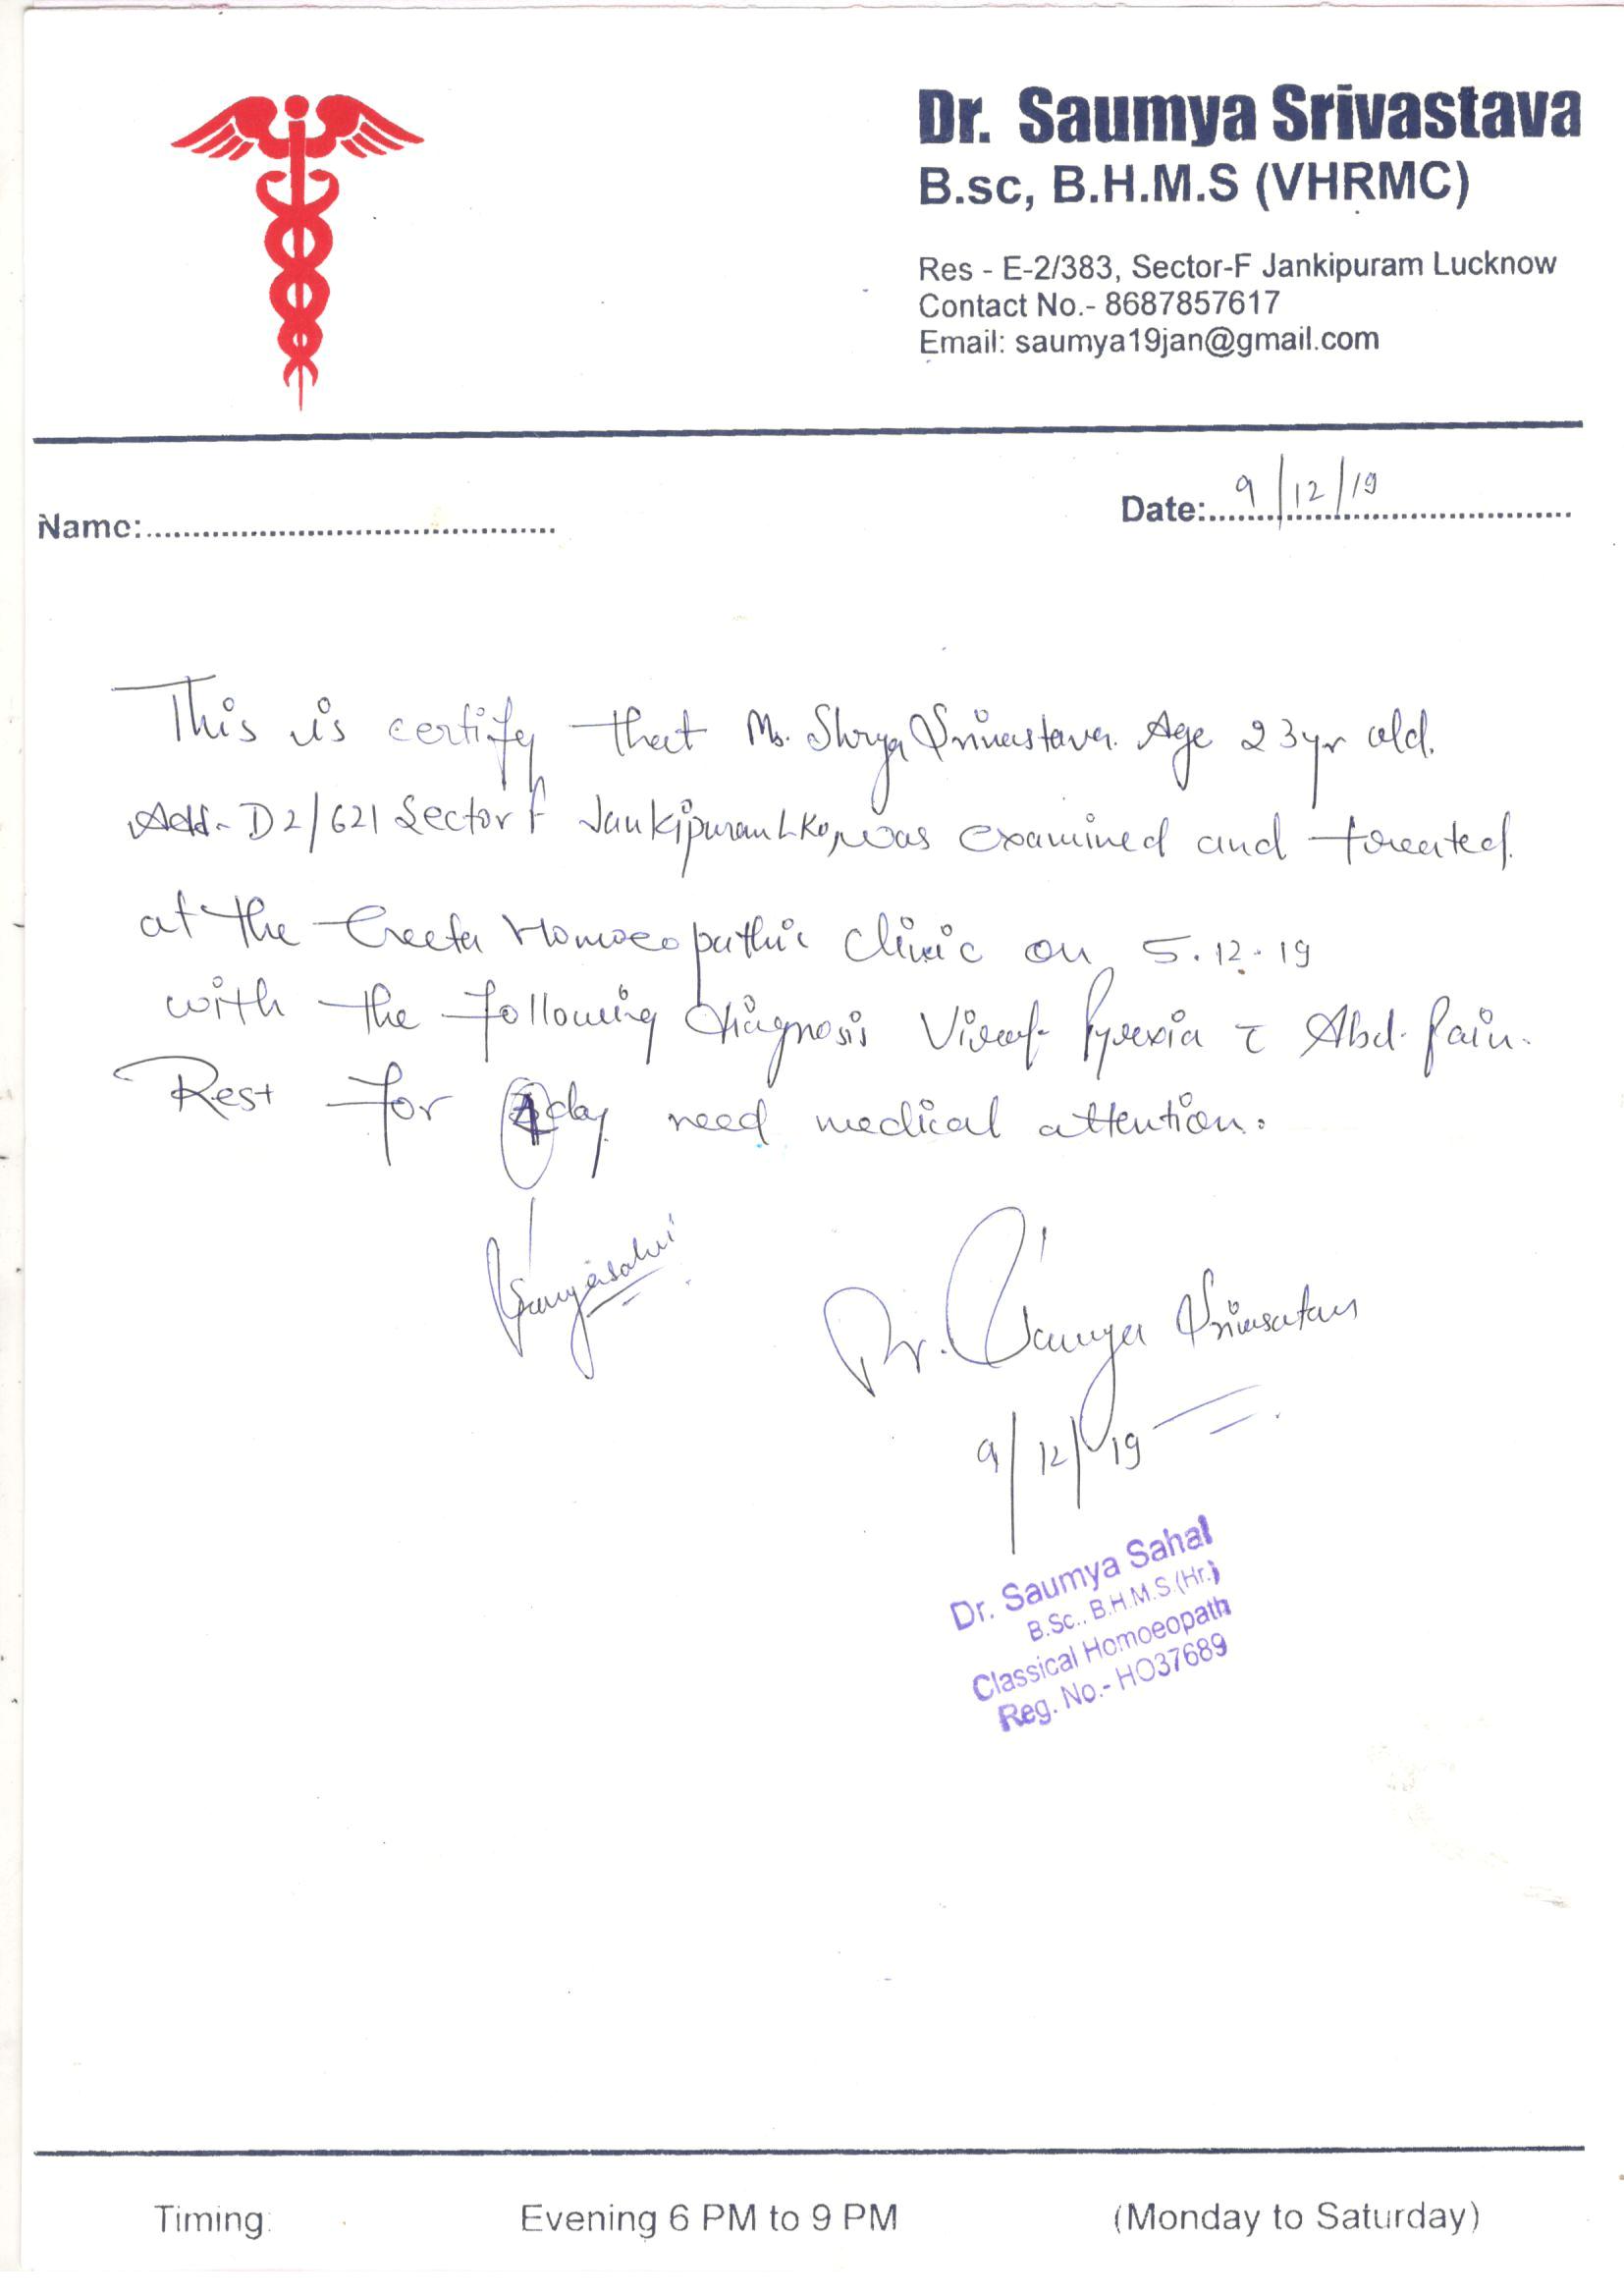 Dr. Saumya Srivastava
B.sc, B.H.M.S (VHRMC)
Res - E-2/383, Sector-F Jankipuram Lucknow
Contact No.- 8687857617
Email: saumya19jan@gmail.com
Name:
Date: 9/12/19
This is certify that Ms. Shrya Srivastava Age 23yr old.
Add- D2/621 Sector F Jankipuram Lko, was examined and treated
at the Geeta Homoeopathic Clinic on 5.12.19
with the following diagnosis Viral Pyrexia c Abd. Pain.
Rest for day need medical attention.
Saumyasahai
Dr. Saumya Srivastava
9/12/19
Dr. Saumya Sahai
B.Sc., B.H.M.S.(Hr.)
Classical Homoeopath
Reg. No.- HO37689
Timing: Evening 6 PM to 9 PM (Monday to Saturday)